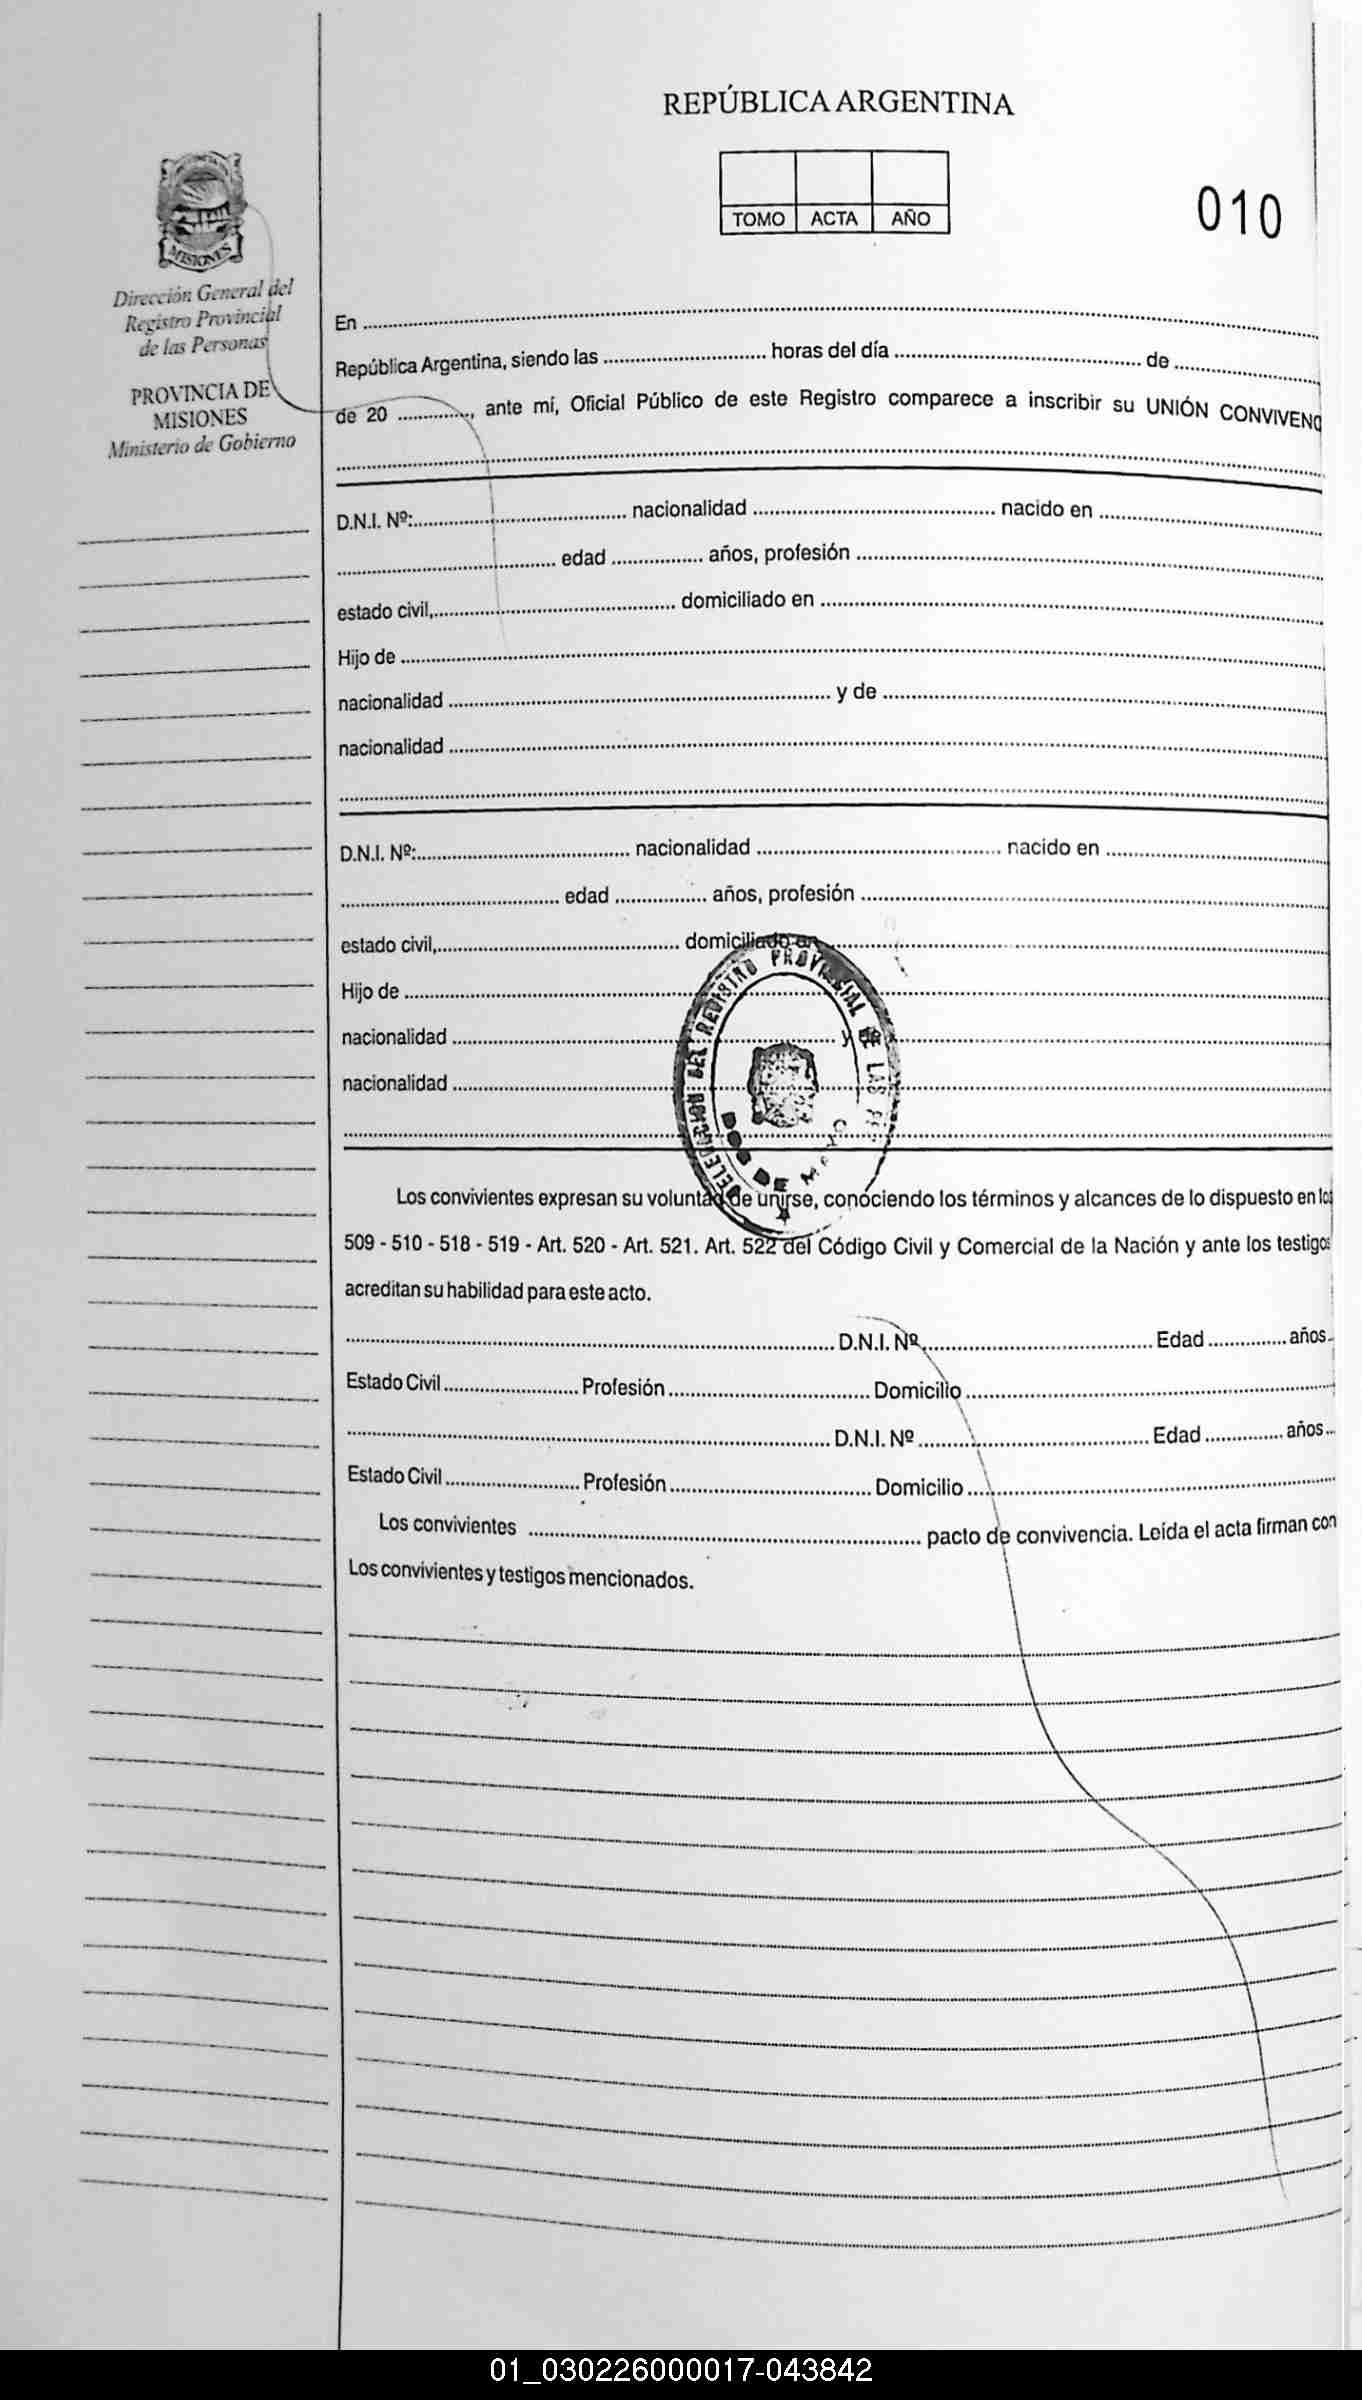 REPÚBLICA ARGENTINA
TOMO ACTA AÑO
010
MISIONES
Dirección General del
Registro Provincial
de las Personas
PROVINCIA DE
MISIONES
Ministerio de Gobierno
En ........................................
República Argentina, siendo las .................... horas del día .................... de ....................
de 20 ............., ante mí, Oficial Público de este Registro comparece a inscribir su UNIÓN CONVIVENC
D.N.I. Nº:.................... nacionalidad .................... nacido en ....................
.................... edad ................ años, profesión ....................
estado civil,.................... domiciliado en ....................
Hijo de ....................
nacionalidad .................... y de ....................
nacionalidad ....................
D.N.I. Nº:.................... nacionalidad .................... nacido en ....................
.................... edad ................ años, profesión ....................
estado civil,.................... domiciliado en ....................
Hijo de ....................
nacionalidad .................... y de ....................
nacionalidad ....................
DELEGACION DEL REGISTRO PROVINCIAL DE LAS
DOS DE MAYO
Los convivientes expresan su voluntad de unirse, conociendo los términos y alcances de lo dispuesto en los
509 - 510 - 518 - 519 - Art. 520 - Art. 521. Art. 522 del Código Civil y Comercial de la Nación y ante los testigos
acreditan su habilidad para este acto.
.................... D.N.I. Nº.................... Edad .............. años..
Estado Civil.................... Profesión.................... Domicilio....................
.................... D.N.I. Nº.................... Edad .............. años...
Estado Civil.................... Profesión.................... Domicilio....................
Los convivientes .................... pacto de convivencia. Leída el acta firman con
Los convivientes y testigos mencionados.
01_030226000017-043842